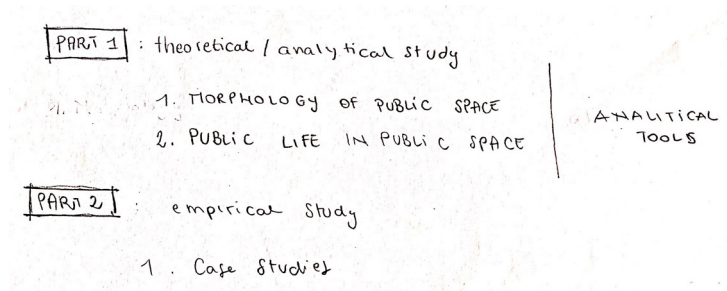 PART 1 : theoretical / analytical study
1. MORPHOLOGY OF PUBLIC SPACE
2. PUBLIC LIFE IN PUBLIC SPACE
ANALITICAL
TOOLS
PART 2 : empirical study
1. Case Studies